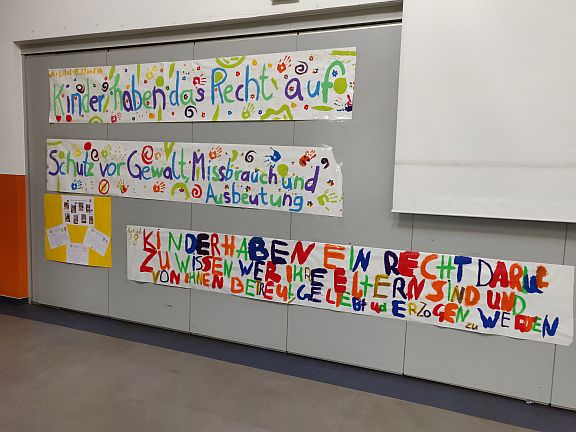 Kinder haben das Recht auf
Schutz vor Gewalt, Missbrauch und
Ausbeutung
KINDER HABEN EIN RECHT DARUF
ZU WISSEN WER IHRE ELTERN SIND UND
VON IHNEN BETREUT GELIEBT und ERZOGEN ZU WERDEN